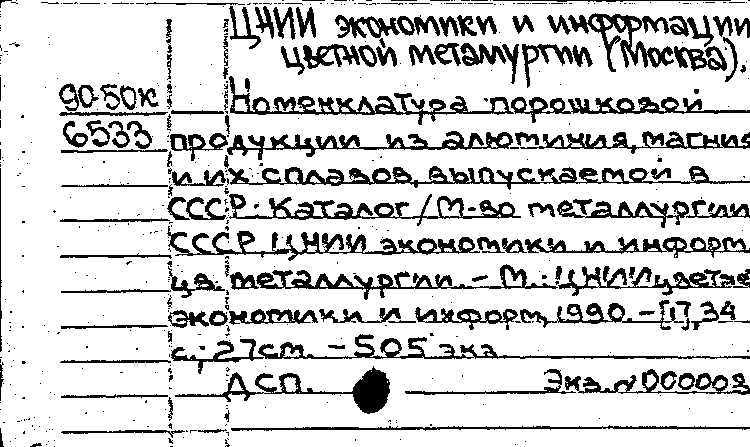 ЦНИИ экономики и информации
цветной металлургии (Москва).
90-50к Номенклатура порошковой
6533 продукции из алюминия, магния
и их сплавов, выпускаемой в
СССР: Каталог / М-во металлургии
СССР, ЦНИИ экономики и информ.
цв. металлургии. - М.: ЦНИИцветмет
экономики и информ, 1990. - [1], 34
с.; 27см. - 505 экз.
ДСП. Экз. № 000003